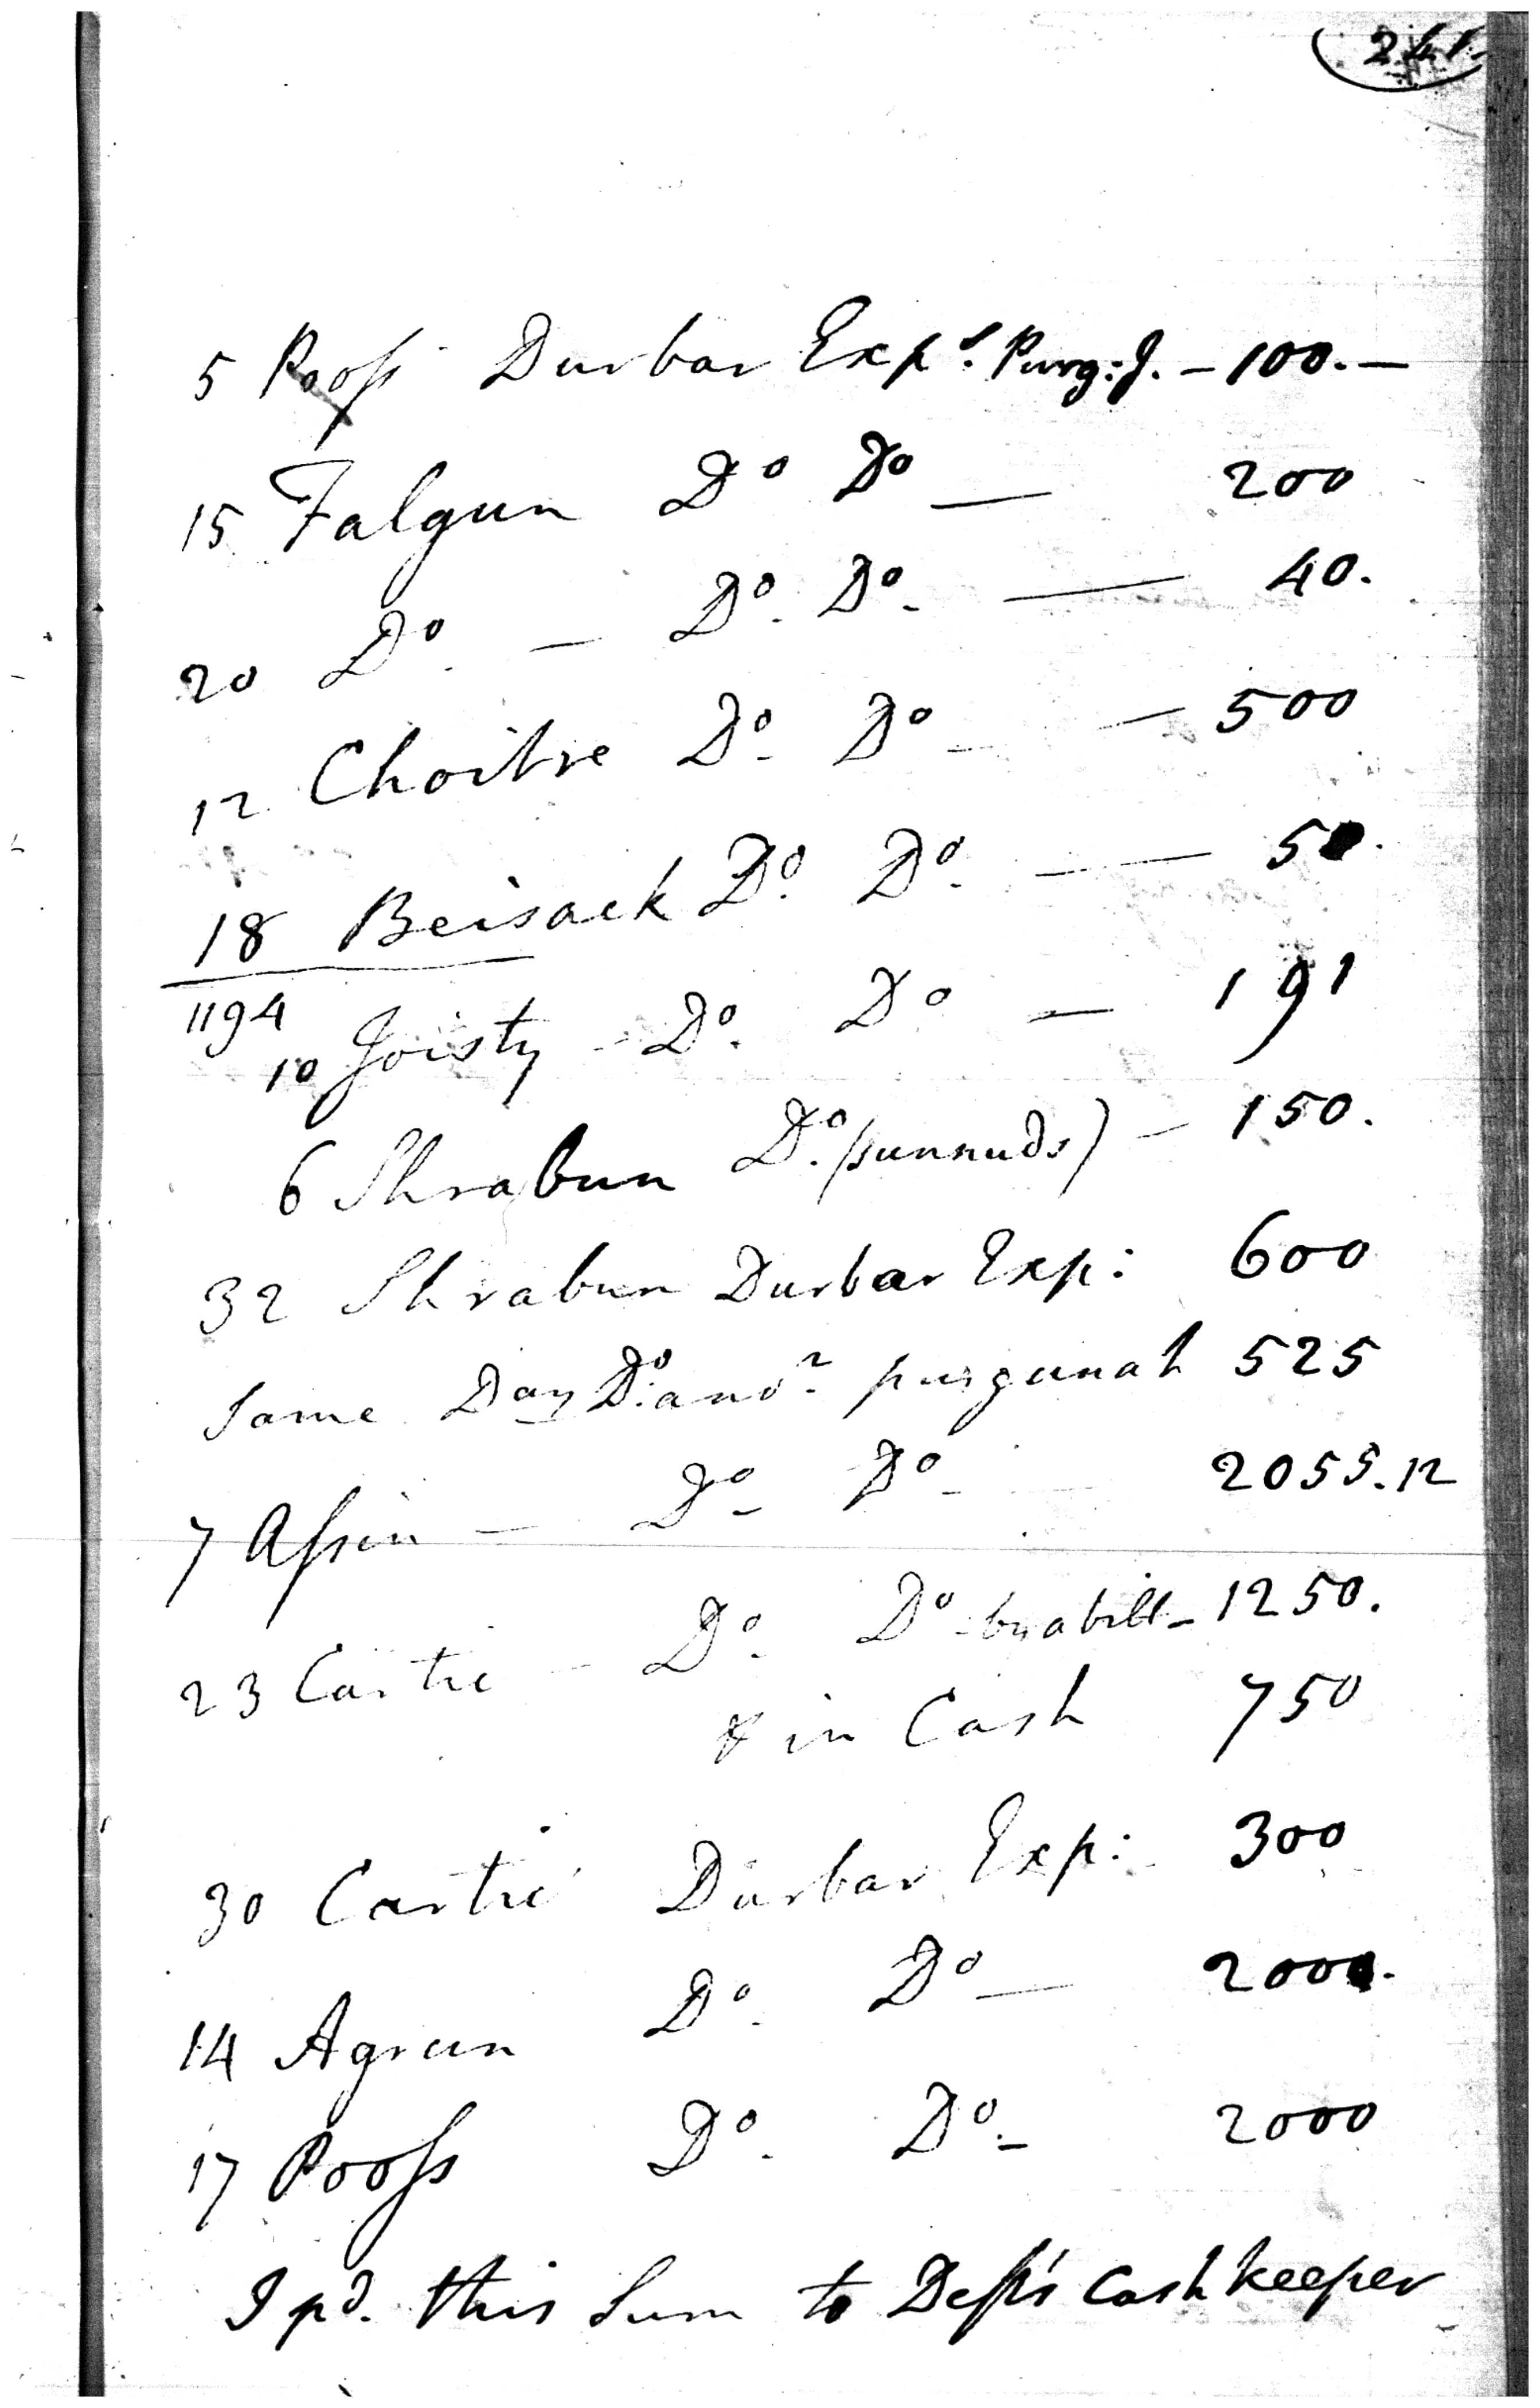 241.
5 Pooss Durbar Exps. Purg: J. — 100. —
15 Falgun Do Do — 200
20 Do. — Do. Do. — 40.
12 Choitre Do. Do — — 500
18 Beisack Do. Do. — — 50.
1194
10 Joisty — Do. Do — 191
6 Shrabun Do. (sunnuds) — 150.
32 Shrabun Durbar Exp: 600
Same Day Do. and r purgunah 525
7 Assin — Do. Do — 2055.12
23 Cartic — Do. Do — by a bill — 1250.
& in Cash 750
30 Cartic Durbar Exp: 300
14 Agrun Do. Do — 2000.
17 Pooss Do. Do. — 2000
I pd. this Sum to Deft's Cash keeper